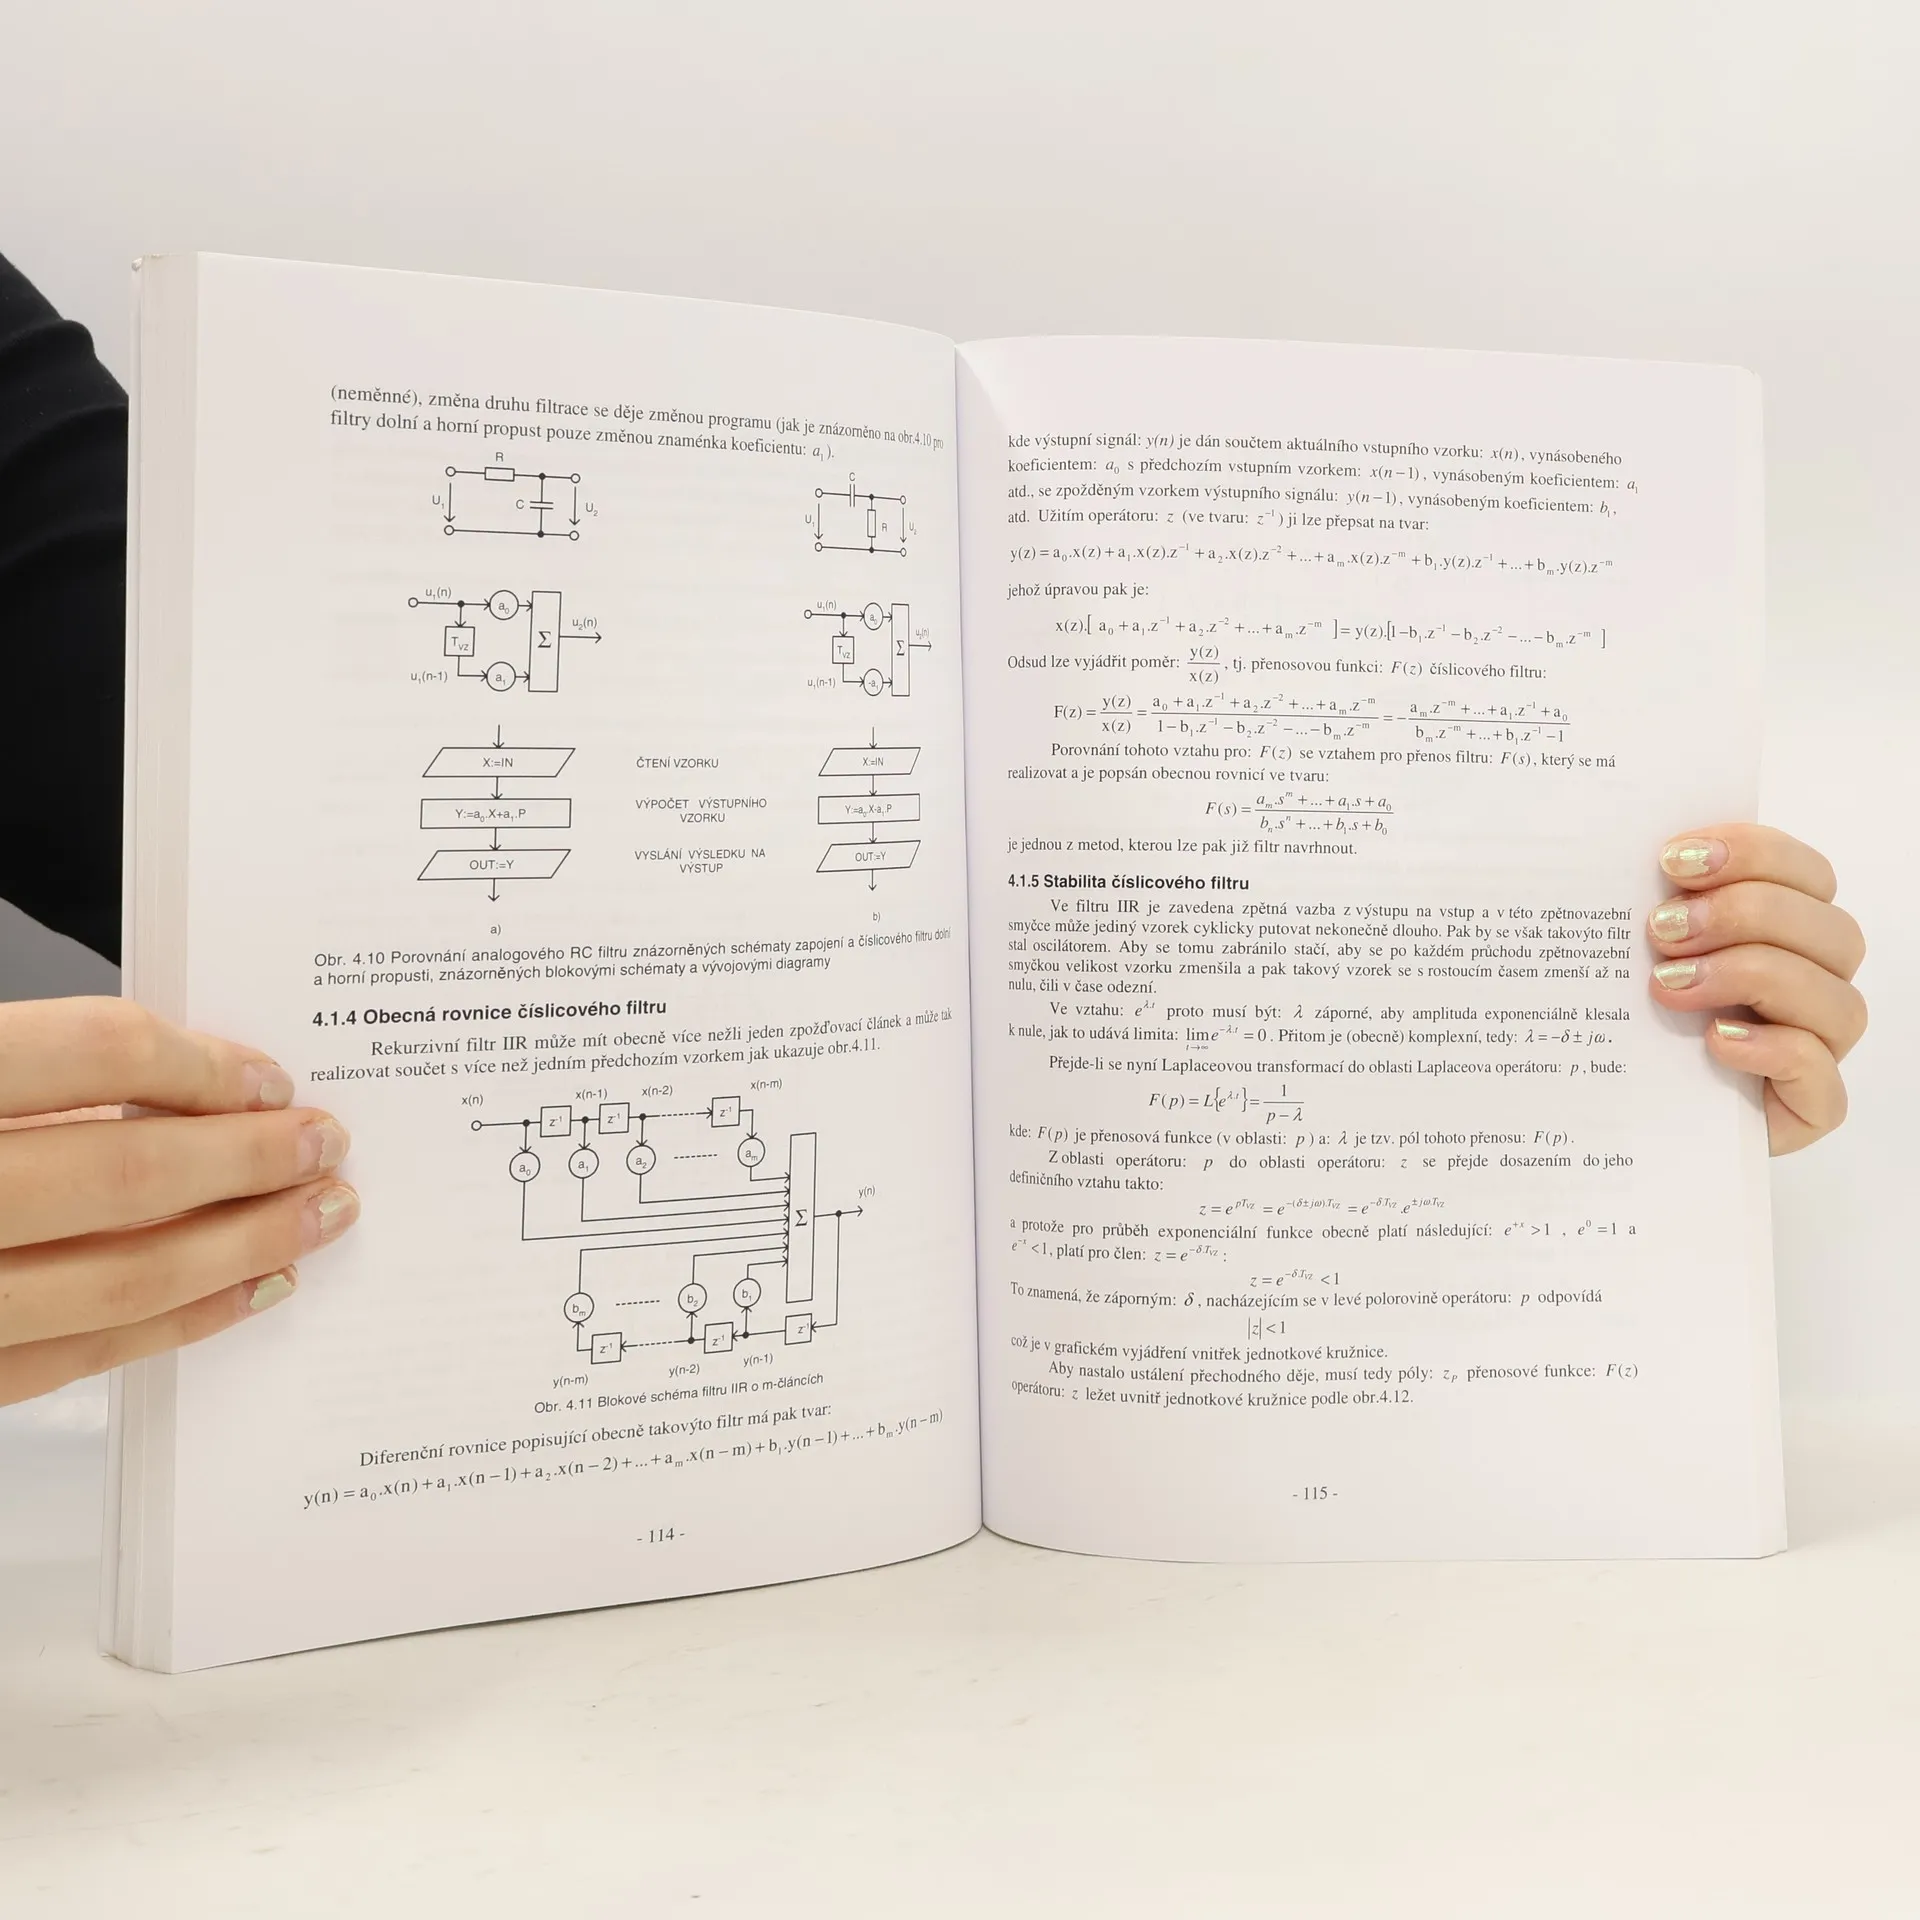 (neměnné), změna druhu filtrace se děje změnou programu (jak je znázorněno na obr.4.10 pro
filtry dolní a horní propust pouze změnou znaménka koeficientu: a₁).
R
C
U₁
U₂
C
R
U₁
U₂
u₁(n)
a₀
T_VZ
Σ
u₂(n)
u₁(n-1)
a₁
u₁(n)
a₀
T_VZ
Σ
u₂(n)
u₁(n-1)
-a₁
X:=IN
ČTENÍ VZORKU
X:=IN
Y:=a₀.X+a₁.P
VÝPOČET VÝSTUPNÍHO
VZORKU
Y:=a₀.X-a₁.P
OUT:=Y
VYSLÁNÍ VÝSLEDKU NA
VÝSTUP
OUT:=Y
a)
b)
Obr. 4.10 Porovnání analogového RC filtru znázorněných schématy zapojení a číslicového filtru dolní
a horní propusti, znázorněných blokovými schématy a vývojovými diagramy
4.1.4 Obecná rovnice číslicového filtru
Rekurzivní filtr IIR může mít obecně více nežli jeden zpožďovací článek a může tak
realizovat součet s více než jedním předchozím vzorkem jak ukazuje obr.4.11.
x(n)
x(n-1)
x(n-2)
x(n-m)
z⁻¹
z⁻¹
z⁻¹
a₀
a₁
a₂
aₘ
Σ
y(n)
bₘ
b₂
b₁
z⁻¹
z⁻¹
z⁻¹
y(n-m)
y(n-2)
y(n-1)
Obr. 4.11 Blokové schéma filtru IIR o m-článcích
Diferenční rovnice popisující obecně takovýto filtr má pak tvar:
y(n) = a₀.x(n) + a₁.x(n – 1) + a₂.x(n – 2) + ... + aₘ.x(n – m) + b₁.y(n – 1) + ... + bₘ.y(n – m)
- 114 -
kde výstupní signál: y(n) je dán součtem aktuálního vstupního vzorku: x(n), vynásobeného
koeficientem: a₀ s předchozím vstupním vzorkem: x(n – 1), vynásobeným koeficientem: a₁
atd., se zpožděným vzorkem výstupního signálu: y(n – 1), vynásobeným koeficientem: b₁,
atd. Užitím operátoru: z (ve tvaru: z⁻¹) ji lze přepsat na tvar:
y(z) = a₀.x(z) + a₁.x(z).z⁻¹ + a₂.x(z).z⁻² + ... + aₘ.x(z).z⁻ᵐ + b₁.y(z).z⁻¹ + ... + bₘ.y(z).z⁻ᵐ
jehož úpravou pak je:
x(z).[ a₀ + a₁.z⁻¹ + a₂.z⁻² + ... + aₘ.z⁻ᵐ ] = y(z).[1 – b₁.z⁻¹ – b₂.z⁻² – ... – bₘ.z⁻ᵐ ]
Odsud lze vyjádřit poměr: y(z)/x(z), tj. přenosovou funkci: F(z) číslicového filtru:
F(z) = y(z)/x(z) = (a₀ + a₁.z⁻¹ + a₂.z⁻² + ... + aₘ.z⁻ᵐ)/(1 – b₁.z⁻¹ – b₂.z⁻² – ... – bₘ.z⁻ᵐ) = – (aₘ.z⁻ᵐ + ... + a₁.z⁻¹ + a₀)/(bₘ.z⁻ᵐ + ... + b₁.z⁻¹ – 1)
Porovnání tohoto vztahu pro: F(z) se vztahem pro přenos filtru: F(s), který se má
realizovat a je popsán obecnou rovnicí ve tvaru:
F(s) = (aₘ.sᵐ + ... + a₁.s + a₀)/(bₙ.sⁿ + ... + b₁.s + b₀)
je jednou z metod, kterou lze pak již filtr navrhnout.
4.1.5 Stabilita číslicového filtru
Ve filtru IIR je zavedena zpětná vazba z výstupu na vstup a v této zpětnovazební
smyčce může jediný vzorek cyklicky putovat nekonečně dlouho. Pak by se však takovýto filtr
stal oscilátorem. Aby se tomu zabránilo stačí, aby se po každém průchodu zpětnovazební
smyčkou velikost vzorku zmenšila a pak takový vzorek se s rostoucím časem zmenší až na
nulu, čili v čase odezní.
Ve vztahu: e^λ.t proto musí být: λ záporné, aby amplituda exponenciálně klesala
k nule, jak to udává limita: lim t→∞ e^–λ.t = 0. Přitom je (obecně) komplexní, tedy: λ = –δ ± jω.
Přejde-li se nyní Laplaceovou transformací do oblasti Laplaceova operátoru: p, bude:
F(p) = L{e^λ.t} = 1/(p – λ)
kde: F(p) je přenosová funkce (v oblasti: p) a: λ je tzv. pól tohoto přenosu: F(p).
Z oblasti operátoru: p do oblasti operátoru: z se přejde dosazením do jeho
definičního vztahu takto:
z = e^pT_VZ = e^–(δ±jω).T_VZ = e^–δ.T_VZ .e^±jω.T_VZ
a protože pro průběh exponenciální funkce obecně platí následující: e⁺ˣ > 1 , e⁰ = 1 a
e⁻ˣ < 1, platí pro člen: z = e^–δ.T_VZ :
z = e^–δ.T_VZ < 1
To znamená, že záporným: δ, nacházejícím se v levé polorovině operátoru: p odpovídá
|z| < 1
což je v grafickém vyjádření vnitřek jednotkové kružnice.
Aby nastalo ustálení přechodného děje, musí tedy póly: z_P přenosové funkce: F(z)
operátoru: z ležet uvnitř jednotkové kružnice podle obr.4.12.
- 115 -